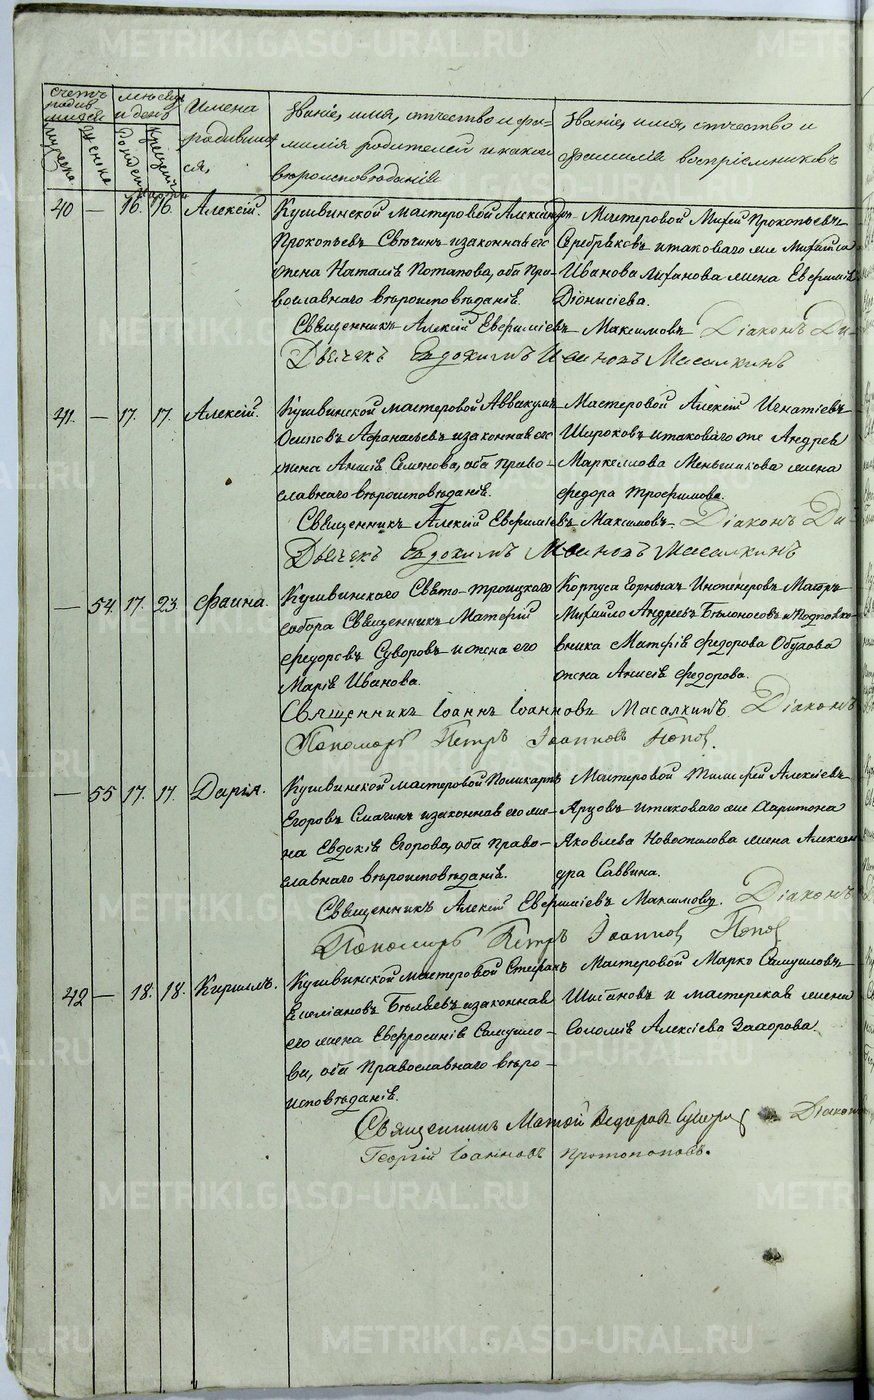 METRIKI.GASO-URAL.RU
счетъ родив- шихся
мужеска
женска
мѣсяцъ и день
рожденія
крещенія
Имена родивших ся,
Званіе, имя, отчество и фа- милія родителей и какого вѣроисповѣданія
Званіе, имя, отчество и фамилія воспріемниковъ
Марта
40 — 16. 16. Алексій.
Кушвинской мастеровой Александръ
Прокопьевъ Свѣчинъ и законная его
жена Наталія Потапова, оба Пра-
вославнаго вѣроисповѣданія.
Мастеровой Михей Прокопьевъ
Серебряковъ и таковаго же Михаила
Иванова жена Евфимія
Діонисіева.
Священникъ Алексій Евфиміевъ Максимовъ Діаконъ
Дьячекъ Евдокимъ Масалкинъ
41. — 17. 17. Алексій.
Кушвинской мастеровой Аввакумъ
Осиповъ Афанасьевъ и законная его
жена Анисія Семенова, оба право-
славнаго вѣроисповѣданія.
Мастеровой Алексій Игнатіевъ
Широковъ и таковаго же Андрея
Маркеллова Меньшикова жена
Федора Трофимова.
Священникъ Алексій Евфиміевъ Максимовъ Діаконъ
Дьячекъ Евдокимъ Масалкинъ
— 54. 17. 23. Фаина.
Кушвинскаго Свято-Троицкаго
собора Священникъ Матфій
Федоровъ Суворовъ и жена его
Марія Иванова.
Корпуса Горныхъ Инженеровъ Маіоръ
Михайло Андреевъ Бѣлоносовъ и Подполко-
вника Матфія Федорова Обухова
жена Анисія Федорова.
Священникъ Іоаннъ Іоанновъ Масалкинъ Діаконъ
Пономарь Петръ Іоанновъ Поповъ.
— 55 17. 17. Дарія.
Кушвинской мастеровой Поликарпъ
Егоровъ Смагинъ и законная его же-
на Евдокія Егорова, оба Право-
славнаго вѣроисповѣданія.
Мастеровой Тимофей Алексіевъ
и таковаго же Харитона
Яковлева жена Алексан
дра Саввина.
Священникъ Алексій Евфиміевъ Максимовъ. Діаконъ
Пономарь Петръ Іоанновъ Поповъ
42 — 18. 18. Кириллъ.
Кушвинской мастеровой Стефанъ
Емеліановъ Бѣляевъ и законная
его жена Евфросинія Самуило-
ва, оба Православнаго вѣро-
исповѣданія.
Мастеровой Марко Самуиловъ
и мастерская жена
Соломія Алексіева Захарова.
Священникъ Матфій Федоровъ Суворовъ Діаконъ
Георгій Іоанновъ Протопоповъ.